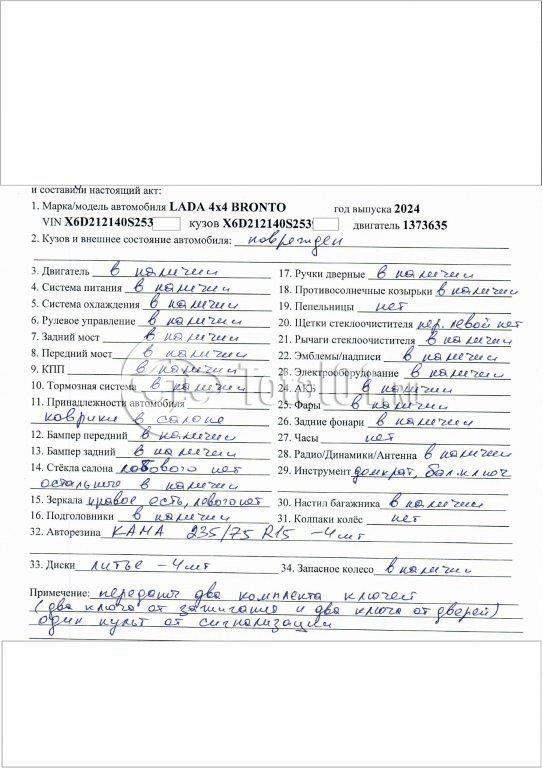 и составили настоящий акт:
1. Марка/модель автомобиля LADA 4x4 BRONTO год выпуска 2024
VIN X6D212140S253 кузов X6D212140S253 двигатель 1373635
2. Кузов и внешнее состояние автомобиля: поврежден
3. Двигатель в наличии 17. Ручки дверные в наличии
4. Система питания в наличии 18. Противосолнечные козырьки в наличии
5. Система охлаждения в наличии 19. Пепельницы нет
6. Рулевое управление в наличии 20. Щетки стеклоочистителя пер. левой нет
7. Задний мост в наличии 21. Рычаги стеклоочистителя в наличии
8. Передний мост в наличии 22. Эмблемы/надписи в наличии
9. КПП в наличии 23. Электрооборудование в наличии
10. Тормозная система в наличии 24. АКБ в наличии
11. Принадлежности автомобиля 25. Фары в наличии
коврики в салоне 26. Задние фонари в наличии
12. Бампер передний в наличии 27. Часы нет
13. Бампер задний в наличии 28. Радио/Динамики/Антенна в наличии
14. Стёкла салона лобового нет 29. Инструмент домкрат, бал.ключ
остальное в наличии
15. Зеркала правое есть, левого нет 30. Настил багажника в наличии
16. Подголовники в наличии 31. Колпаки колёс нет
32. Авторезина КАМА 235/75 R15 – 4 шт
33. Диски литье – 4 шт 34. Запасное колесо в наличии
Примечание: передают два комплекта ключей
(два ключа от зажигания и два ключа от дверей)
один пульт от сигнализации